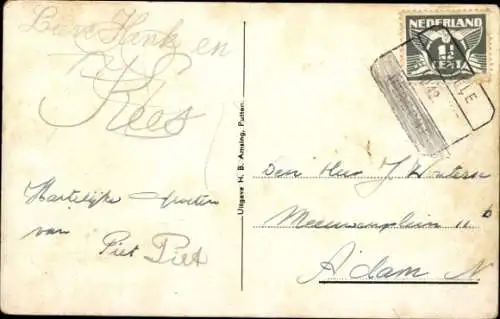 Lieve Henk en
Kees
Hartelijke groeten
van Piet Piet
Uitgave H. B. Amsing, Putten.
NEDERLAND
1½
CENT
Den Heer J
Meeuwenplein 11 b
A'dam N